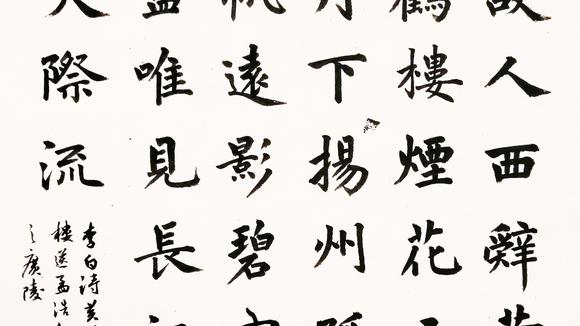 故人西辭黃
鶴樓煙花三
月下揚州孤
帆遠影碧空
盡唯見長江
天際流
李白詩黃
樓送孟浩
之廣陵